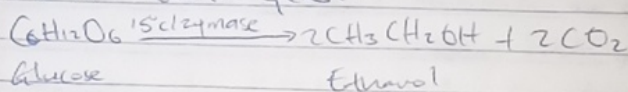 C6H12O6 15°c/zymase → 2CH3CH2OH + 2CO2
Glucose Ethanol